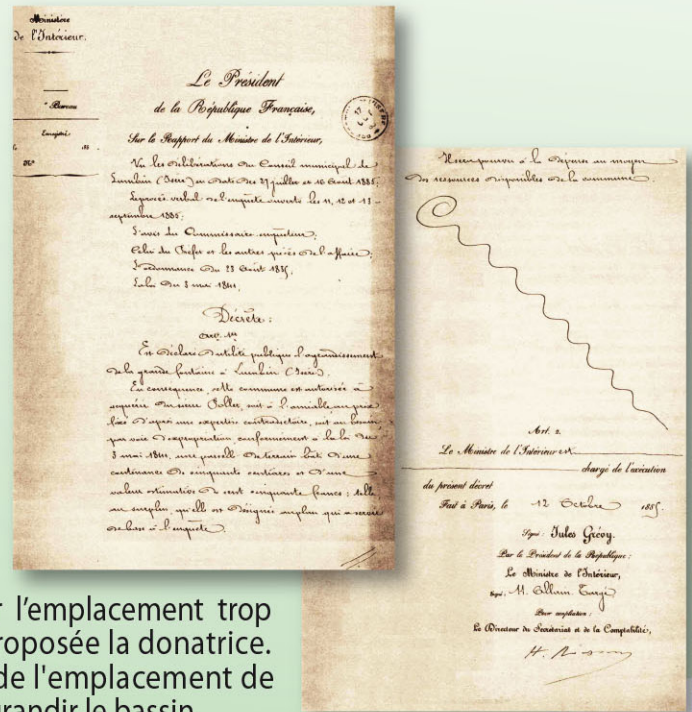 Ministère
de l'Intérieur.
Bureau
Enregistré
N°
Le Président
de la République Française,
Sur le Rapport du Ministre de l'Intérieur,
Vu les délibérations du Conseil municipal de
Lumbin (Isère) en date des 27 juillet et 16 Août 1885;
Le procès verbal de l'enquête ouverte les 11, 12 et 13
septembre 1885;
L'avis du Commissaire enquêteur;
Celui du Préfet et les autres pièces de l'affaire;
L'ordonnance du 23 Août 1835,
La loi du 3 mai 1841,
Décrète:
Art. 1er
Est déclaré d'utilité publique l'agrandissement
de la grande fontaine à Lumbin (Isère).
En conséquence, cette commune est autorisée à
acquérir du sieur Collet, soit à l'amiable au prix
fixé d'après une expertise contradictoire, soit au besoin
par voie d'expropriation, conformément à la loi du
3 mai 1841, une parcelle de terrain bâti d'une
contenance de cinquante centiares et d'une
valeur estimative de cent cinquante francs; telle,
au surplus, qu'elle est désignée au plan qui a servi
de base à l'enquête.
Il sera pourvu à la dépense au moyen
des ressources disponibles de la commune.
Art. 2.
Le Ministre de l'Intérieur est
chargé de l'exécution
du présent décret
Fait à Paris, le 12 Octobre 1885.
Signé: Jules Grévy.
Par le Président de la République:
Le Ministre de l'Intérieur,
Signé: H. Allain Targé
Pour ampliation:
Le Directeur du Secrétariat et de la Comptabilité,
r l'emplacement trop
roposée la donatrice.
de l'emplacement de
grandir le bassin